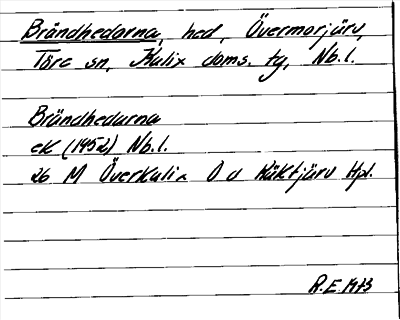 Brändhedarna, hed, Övermorjärv,
Töre sn, Kalix doms. tg, Nb.l.
Brändhedarna
ek (1952) Nb.l.
26 M Överkalix O v Räktjärv Hpl.
R.E. 1973